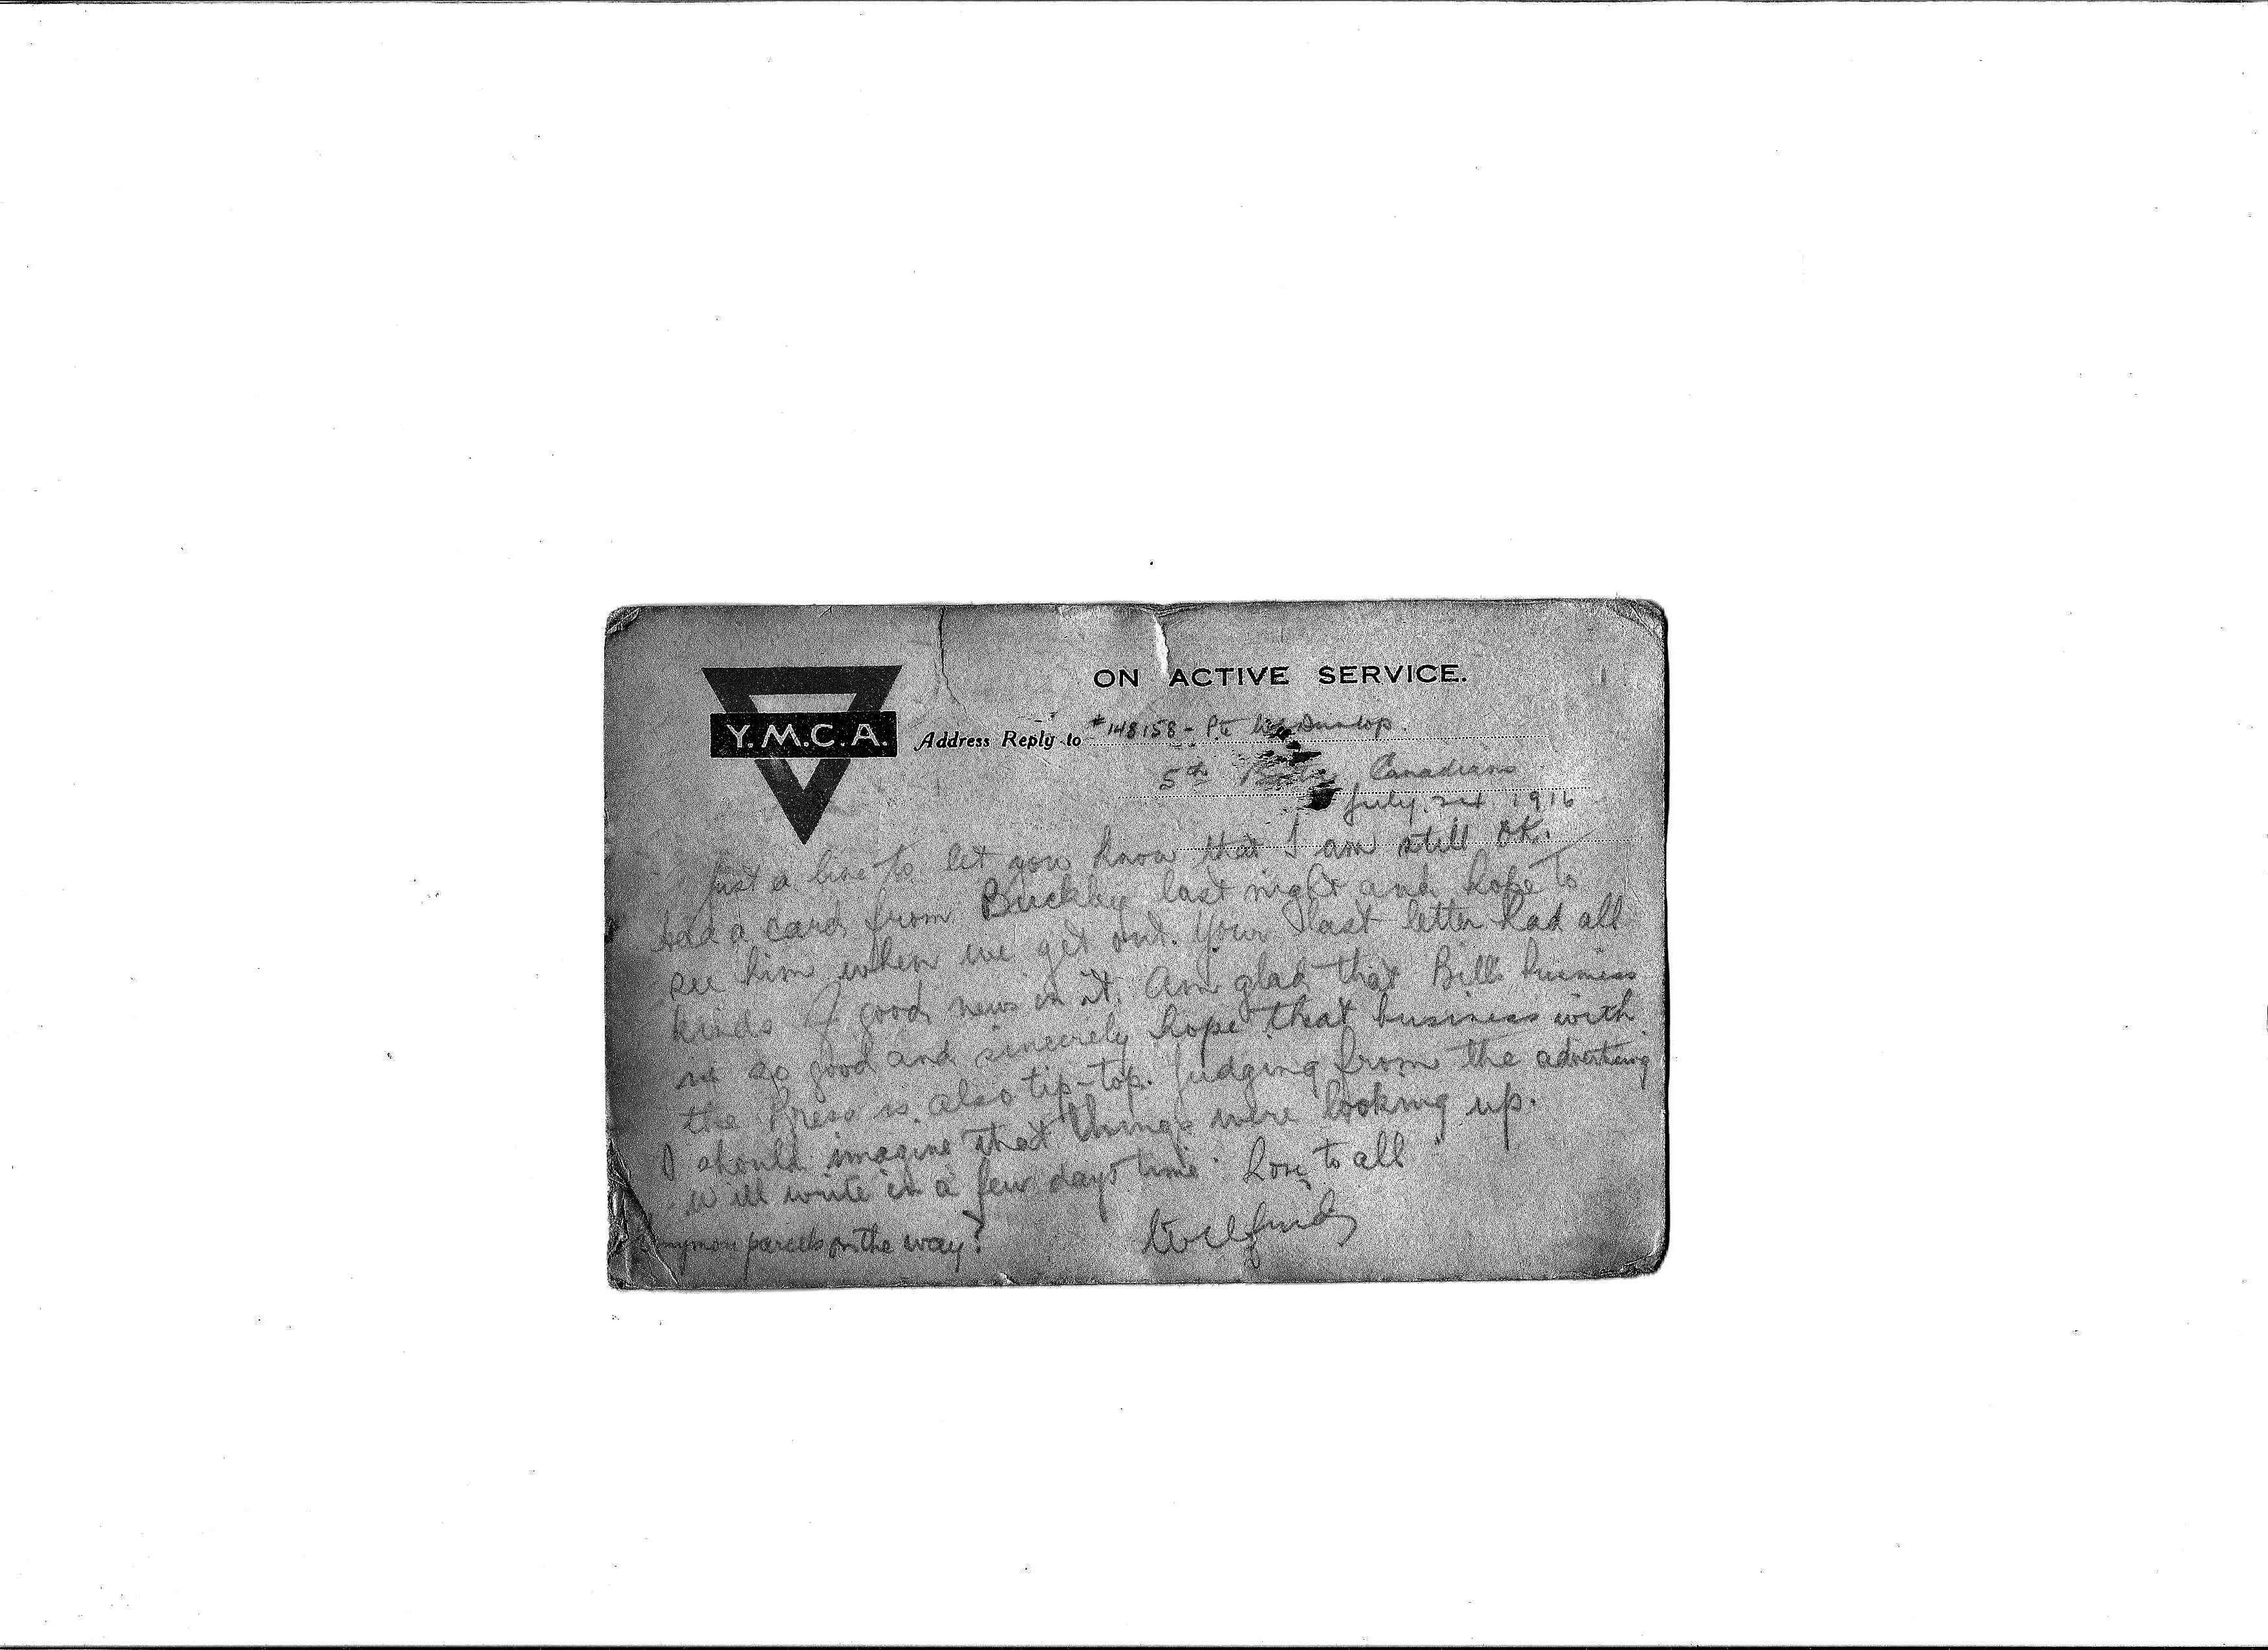 ON ACTIVE SERVICE.
Y.M.C.A.
Address Reply to #148158 - Pte Dunlop.
5th Canadians
July 1916
Just a line to let you know that I am still OK.
Had a card from Buckley last night and hope to
see him when we get out. Your last letter had all
kinds of good news in it. Am glad that Bill's business
is so good and sincerely hope that business with
the Press is also tip-top. Judging from the advertising
I should imagine that things were looking up.
Will write in a few days time. Love to all
Wilfred
parcels on the way?